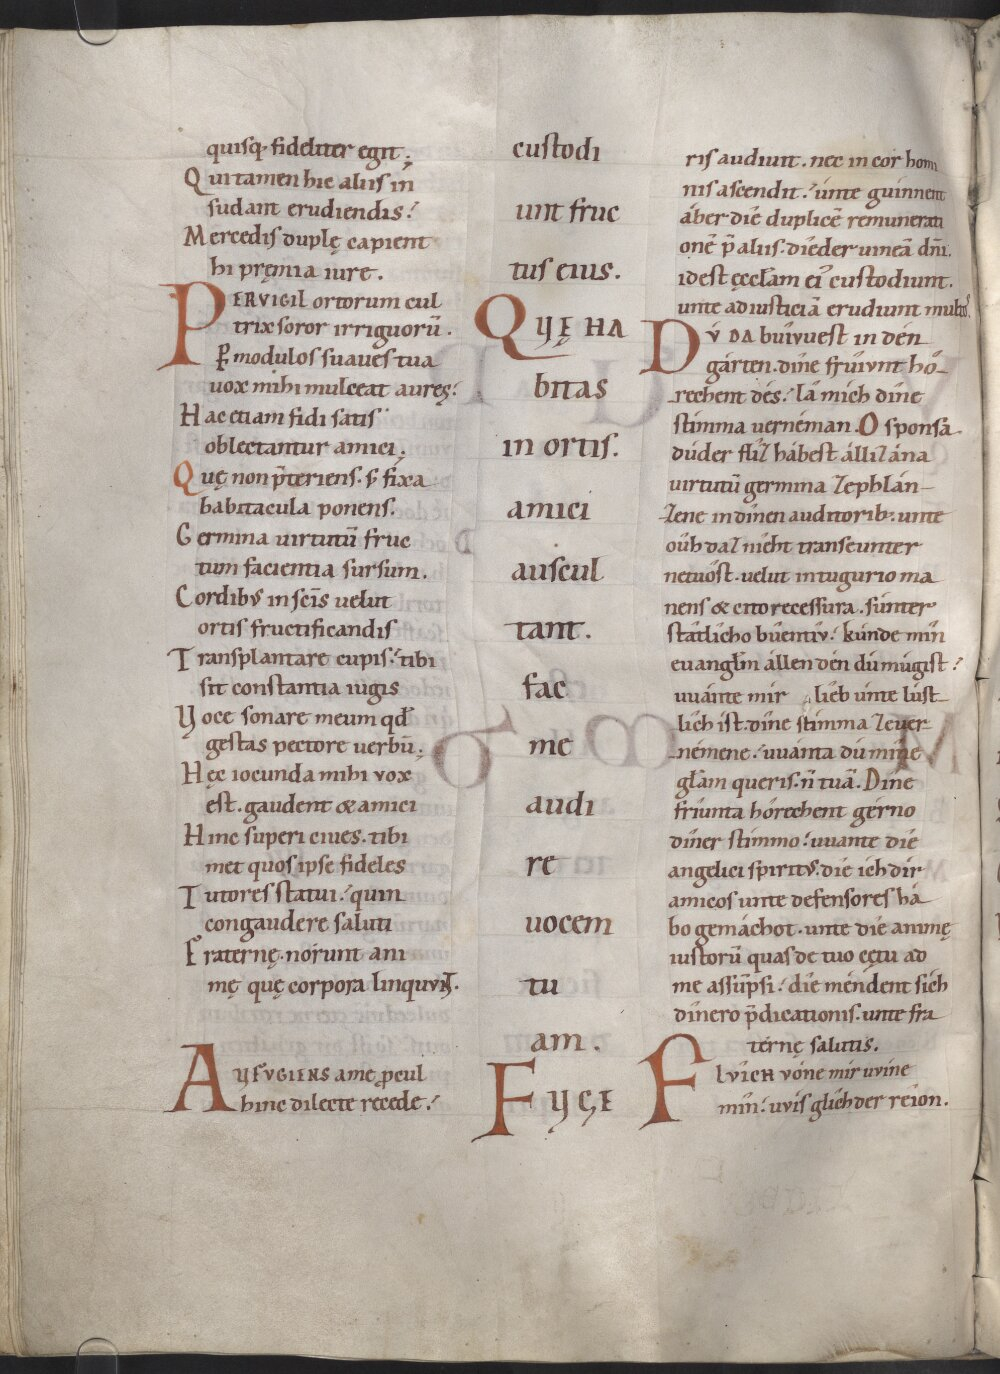 quisq; fideliter egit;
Qui tamen hic aliis in
sudant erudiendis:
Mercedis duplę capient
hi pręmia iure.
PERVIGIL ortorum cul
trix soror irriguorū.
Ꝑ modulos suaues tua
uox mihi mulceat aures:
Hac etiam fidi satis
oblectantur amici;
Quę non p̄teriens. s; fixa
habitacula ponens.
Germina uirtutū fruc
tum facientia sursum.
Cordibus in scīs uelut
ortis fructificandis
Transplantare cupis: tibi
sit constantia iugis
Voce sonare meum qđ
gestas pectore uerbū;
Hęc iocunda mihi uox
est. gaudent & amici
Hinc superi ciues. tibi
met quos ipse fideles
Tutores statui: quin
congaudere saluti
Fraternę. norunt ani
mę quę corpora linquunt.
AVFVGIENS a me procul
hinc dilecte recede:
custodi
unt fruc
tus eius.
QVĘ HA
bitas
in ortis.
amici
auscul
tant.
fac
me
audi
re
uocem
tu
am.
FVGE
ris audiuit. nec in cor homi
nis ascendit: únte guinnent
áber dîe duplicē remunerati
onē p̄ aliis. dîeder uineā dn̄i.
id est ęccłam eī custodiunt.
unte ad iusticiā erudiunt multos.
DV́ DA buívuest in dén
gárten. dîne frúivnt hó
rechent dés: lâ mich dîne
stimma uerneman. O sponsa
dúder flîz hábest állizána
uirtutū germina zephlán
zene in dînen auditorib; unte
oûh daz nieht transeunter
netûost. uelut in tugurio ma
nens & cito recessura. súnter
státlicho bûentiv: kúnde mîn
euangłm állen dén dû múgist:
uuánte mir lieb únte lúst
lich ist. dîne stimma zeuer
némene: uuánta dû mîne
głam queris. n̄ tuā. Dîne
friunta hórechent gérno
dîner stimmo: uuante die
angelici spiritus. dîe ich dir
amicos unte defensores há
bo gemáchot. unte dîe animę
iustorū quas de tuo cętu ad
me assūpsi: dîe méndent sich
dînero p̄dicationis. unte fra
ternę salutis.
FLVICH vóne mir uvine
mîn: uvis glîch der rêion.